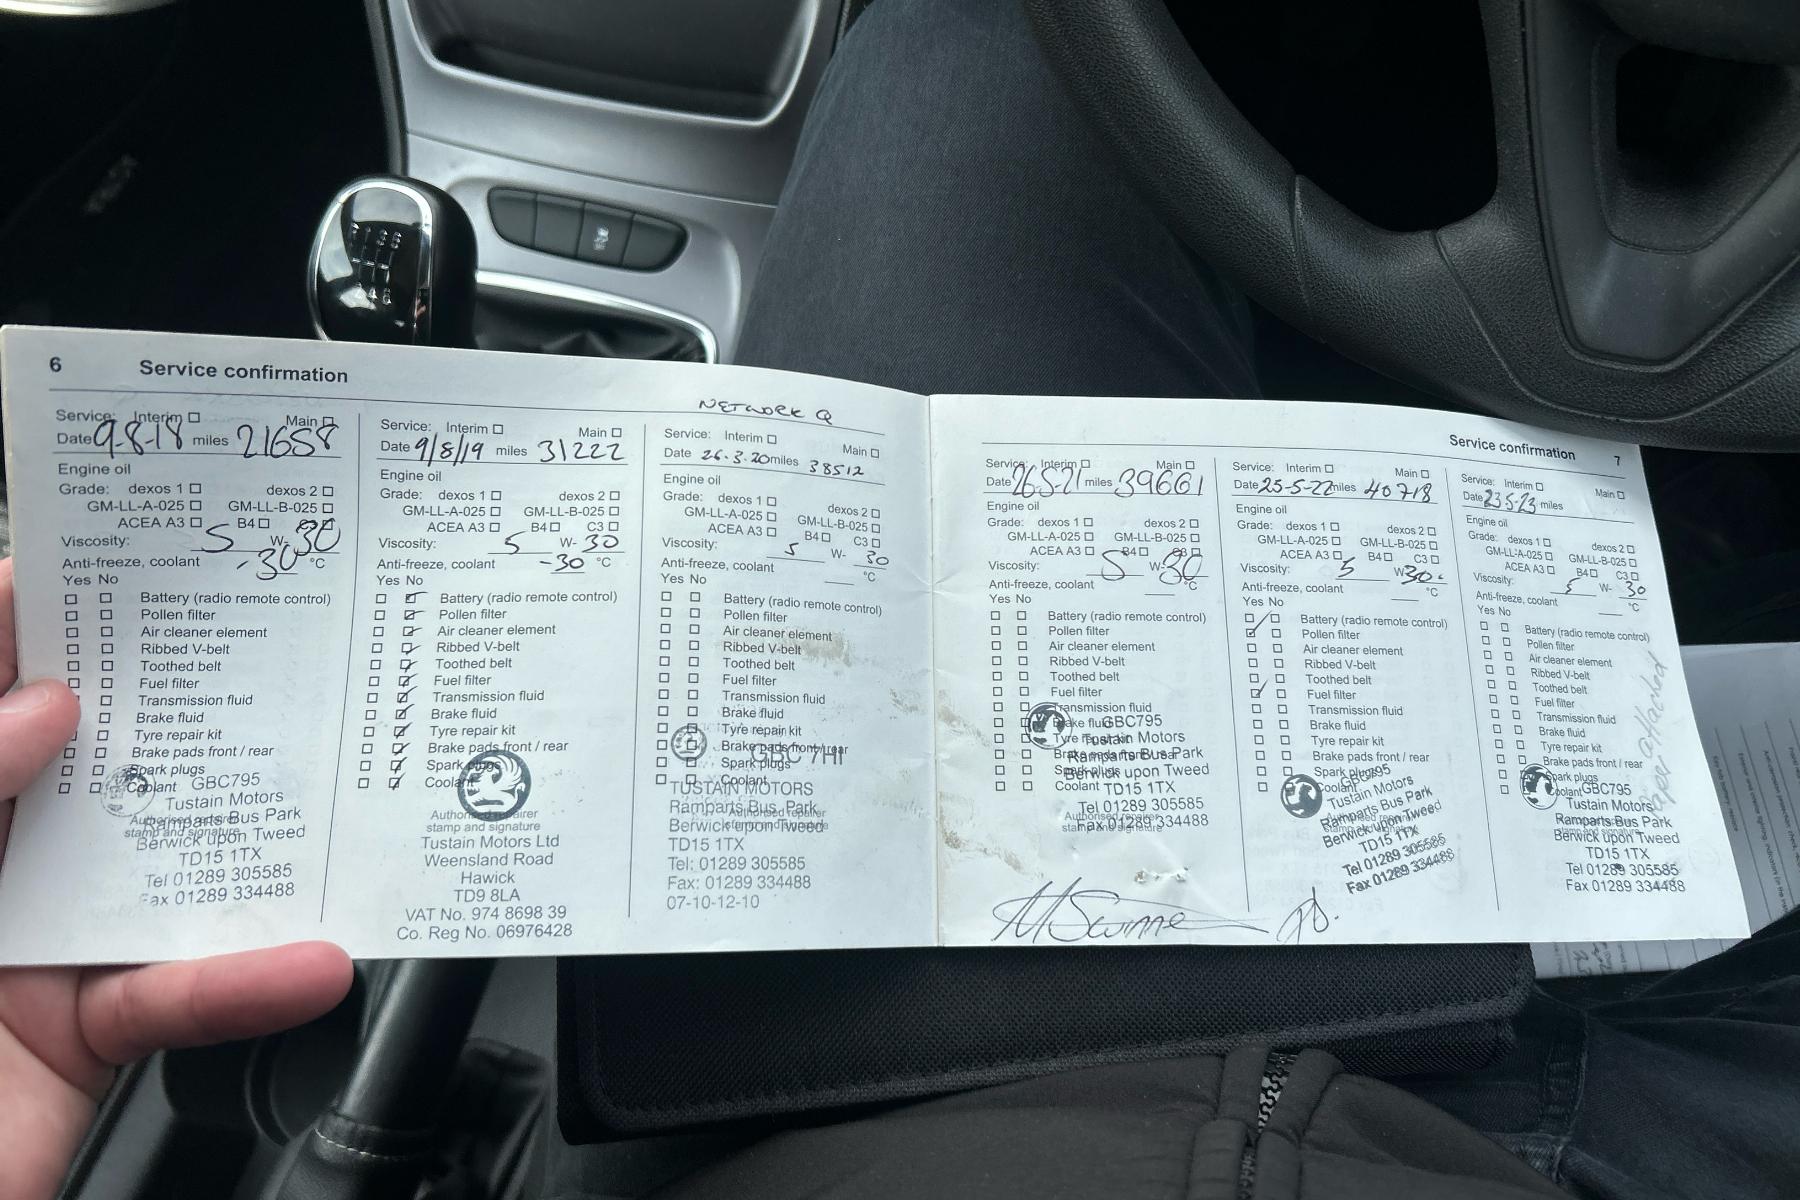 6 Service confirmation
Service: Interim Main
Date 9-8-18 miles 21658
Engine oil
Grade: dexos 1 dexos 2
GM-LL-A-025 GM-LL-B-025
ACEA A3 B4
Viscosity: 5 W- 30
Anti-freeze, coolant -30 °C
Yes No
Battery (radio remote control)
Pollen filter
Air cleaner element
Ribbed V-belt
Toothed belt
Fuel filter
Transmission fluid
Brake fluid
Tyre repair kit
Brake pads front / rear
Spark plugs
Coolant
GBC795
Tustain Motors
Authorised repairer
stamp and signature
Ramparts Bus Park
Berwick upon Tweed
TD15 1TX
Tel 01289 305585
Fax 01289 334488
Service: Interim Main
Date 9/8/19 miles 31222
Engine oil
Grade: dexos 1 dexos 2
GM-LL-A-025 GM-LL-B-025
ACEA A3 B4 C3
Viscosity: 5 W- 30
Anti-freeze, coolant -30 °C
Yes No
Battery (radio remote control)
Pollen filter
Air cleaner element
Ribbed V-belt
Toothed belt
Fuel filter
Transmission fluid
Brake fluid
Tyre repair kit
Brake pads front / rear
Spark plugs
Coolant
Authorised repairer
stamp and signature
Tustain Motors Ltd
Weensland Road
Hawick
TD9 8LA
VAT No. 974 8698 39
Co. Reg No. 06976428
NETWORK Q
Service: Interim Main
Date 26.3.20 miles 38512
Engine oil
Grade: dexos 1 dexos 2
GM-LL-A-025 GM-LL-B-025
ACEA A3 B4 C3
Viscosity: 5 W- 30
Anti-freeze, coolant °C
Yes No
Battery (radio remote control)
Pollen filter
Air cleaner element
Ribbed V-belt
Toothed belt
Fuel filter
Transmission fluid
Brake fluid
Tyre repair kit
Brake pads front / rear
Spark plugs
Coolant
TUSTAIN MOTORS
Ramparts Bus. Park
Authorised repairer
Berwick upon Tweed
TD15 1TX
Tel: 01289 305585
Fax: 01289 334488
07-10-12-10
Service confirmation 7
Service: Interim Main
Date 26-5-21 miles 39661
Engine oil
Grade: dexos 1 dexos 2
GM-LL-A-025 GM-LL-B-025
ACEA A3 B4
Viscosity: 5 W- 30
Anti-freeze, coolant °C
Yes No
Battery (radio remote control)
Pollen filter
Air cleaner element
Ribbed V-belt
Toothed belt
Fuel filter
Transmission fluid
Brake fluid
Tyre repair kit
Brake pads front / rear
Spark plugs
Coolant
GBC795
Tustain Motors
Ramparts Bus Park
Berwick upon Tweed
TD15 1TX
Tel 01289 305585
Authorised repairer
stamp and signature
Fax 01289 334488
Service: Interim Main
Date 25-5-22 miles 40718
Engine oil
Grade: dexos 1 dexos 2
GM-LL-A-025 GM-LL-B-025
ACEA A3 B4 C3
Viscosity: 5 W- 30
Anti-freeze, coolant °C
Yes No
Battery (radio remote control)
Pollen filter
Air cleaner element
Ribbed V-belt
Toothed belt
Fuel filter
Transmission fluid
Brake fluid
Tyre repair kit
Brake pads front / rear
Spark plugs
Coolant
GBC795
Tustain Motors
Ramparts Bus Park
Berwick upon Tweed
TD15 1TX
Tel 01289 305585
Fax 01289 334488
Service: Interim Main
Date 23.5.23 miles
Engine oil
Grade: dexos 1 dexos 2
GM-LL-A-025 GM-LL-B-025
ACEA A3 B4 C3
Viscosity: 5 W- 30
Anti-freeze, coolant °C
Yes No
Battery (radio remote control)
Pollen filter
Air cleaner element
Ribbed V-belt
Toothed belt
Fuel filter
Transmission fluid
Brake fluid
Tyre repair kit
Brake pads front / rear
Spark plugs
Coolant
GBC795
Tustain Motors
Ramparts Bus Park
stamp and signature
Berwick upon Tweed
TD15 1TX
Tel 01289 305585
Fax 01289 334488
paper attached